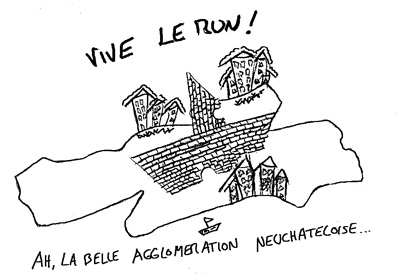 VIVE LE RUN!
AH, LA BELLE AGGLOMERATION NEUCHATELOISE...